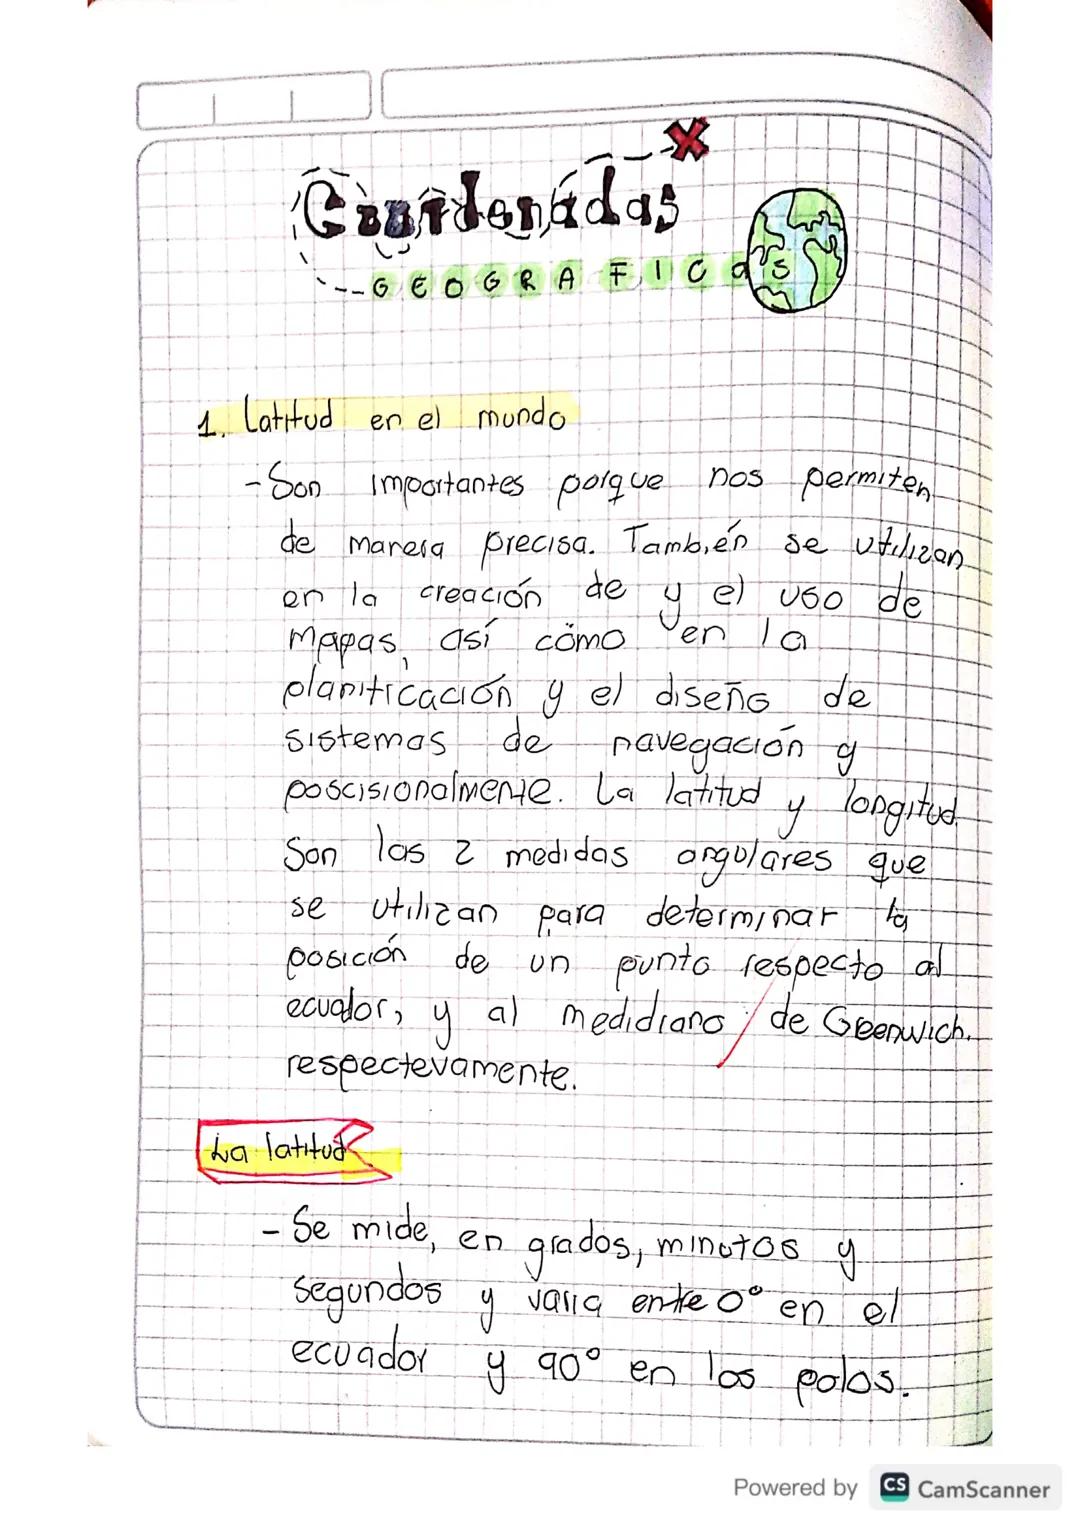 Coordenadas
GEOGRAFICas
1. Latitud en el mundo
- Son importantes porque nos permiten
de manera precisa. También se utilizan
en la creación de y el uso de
mapas, así cómo en la
planificación y el diseño de
sistemas de navegación y
poscisionalmente. La latitud y longitud
Son las 2 medidas angulares que
se utilizan para determinar la
posición de un punto respecto al
ecuador, y al medidiano de Greenwich.
respectevamente.
La latitud
- Se mide, en grados, minutos y
segundos y varia entre 0° en el
ecuador y 90° en los polos.
Powered by CS CamScanner